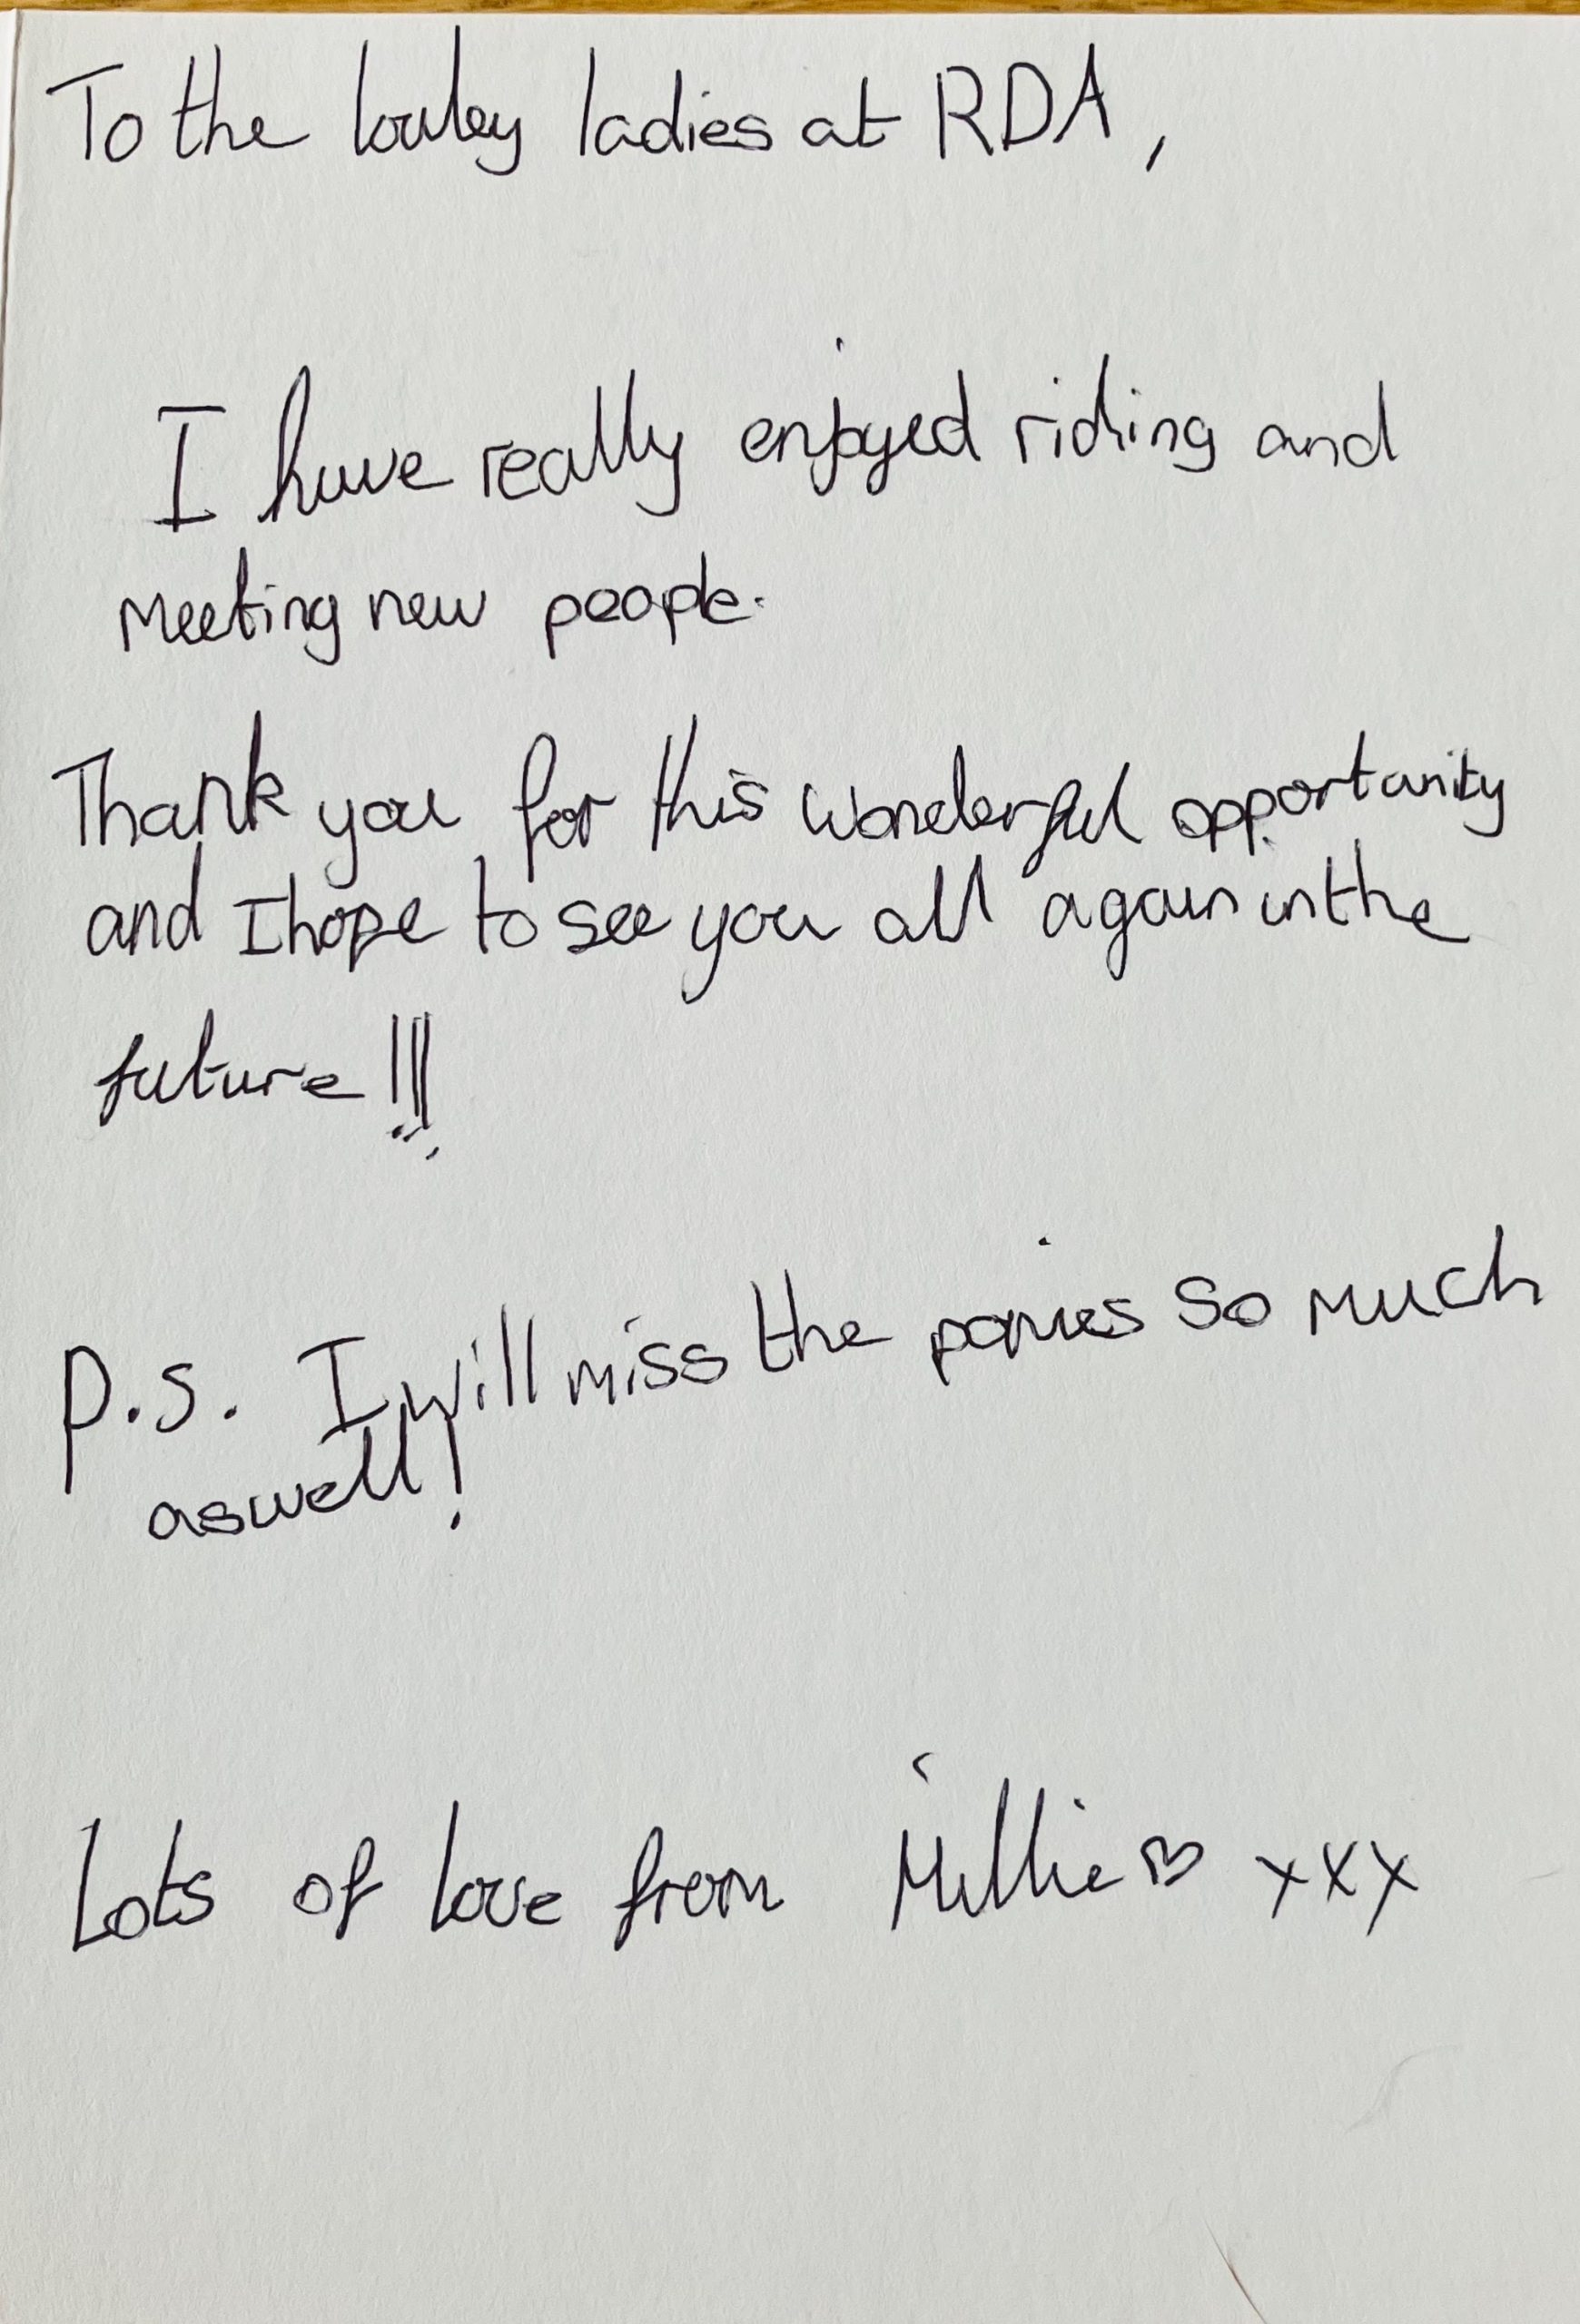 To the lovley ladies at RDA,
I have really enjoyed riding and
meeting new people.
Thank you for this wonderful opportunity
and I hope to see you all again in the
future!!!
P.S. I will miss the ponies so much
aswell!
Lots of love from Millie♡ xxx